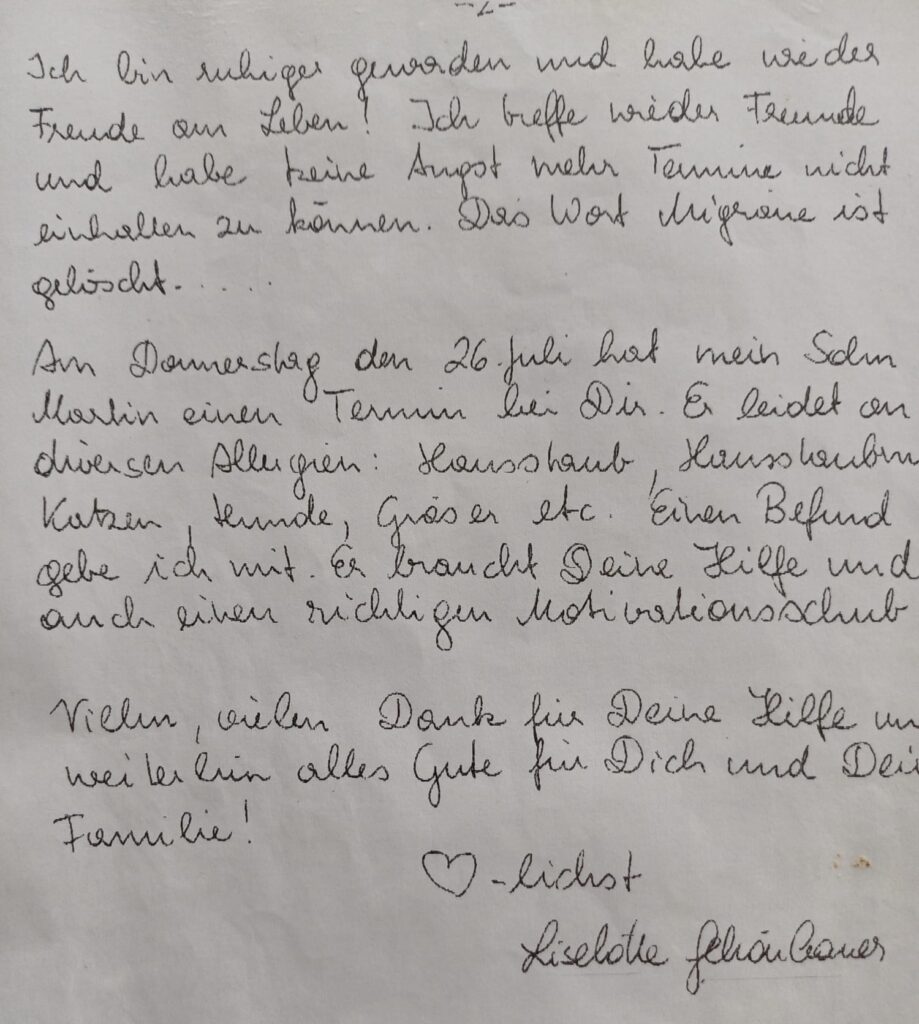 -2-
Ich bin ruhiger geworden und habe wieder
Freude am Leben! Ich treffe wieder Freunde
und habe keine Angst mehr Termine nicht
einhalten zu können. Das Wort Migräne ist
gelöscht.....
Am Donnerstag den 26. Juli hat mein Sohn
Martin einen Termin bei Dir. Er leidet an
diversen Allergien: Hausstaub, Hausstaubm
Katzen, Hunde, Gräser etc. Einen Befund
gebe ich mit. Er braucht Deine Hilfe und
auch einen richtigen Motivationsschub
Vielen, vielen Dank für Deine Hilfe un
weiterhin alles Gute für Dich und Dei
Familie!
♡-lichst
Liselotte Schönbauer